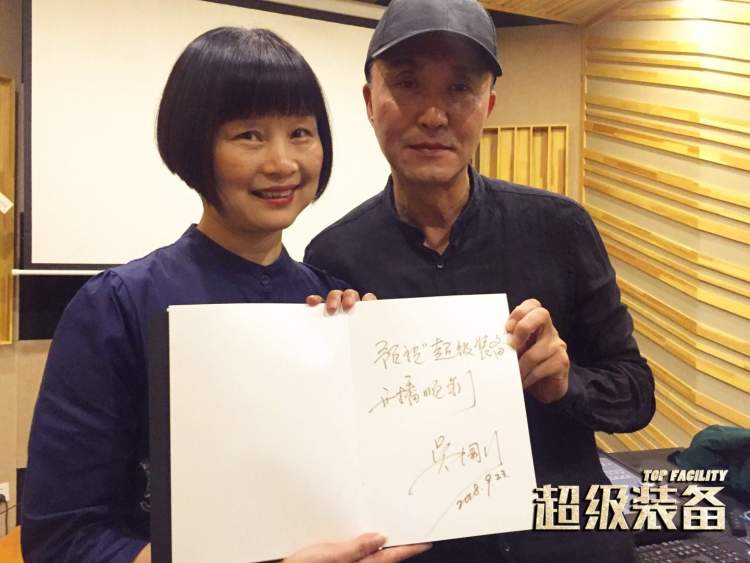 预祝"超级装备
开播顺利
吴
2018.9.23.
TOP FACILITY
超级装备